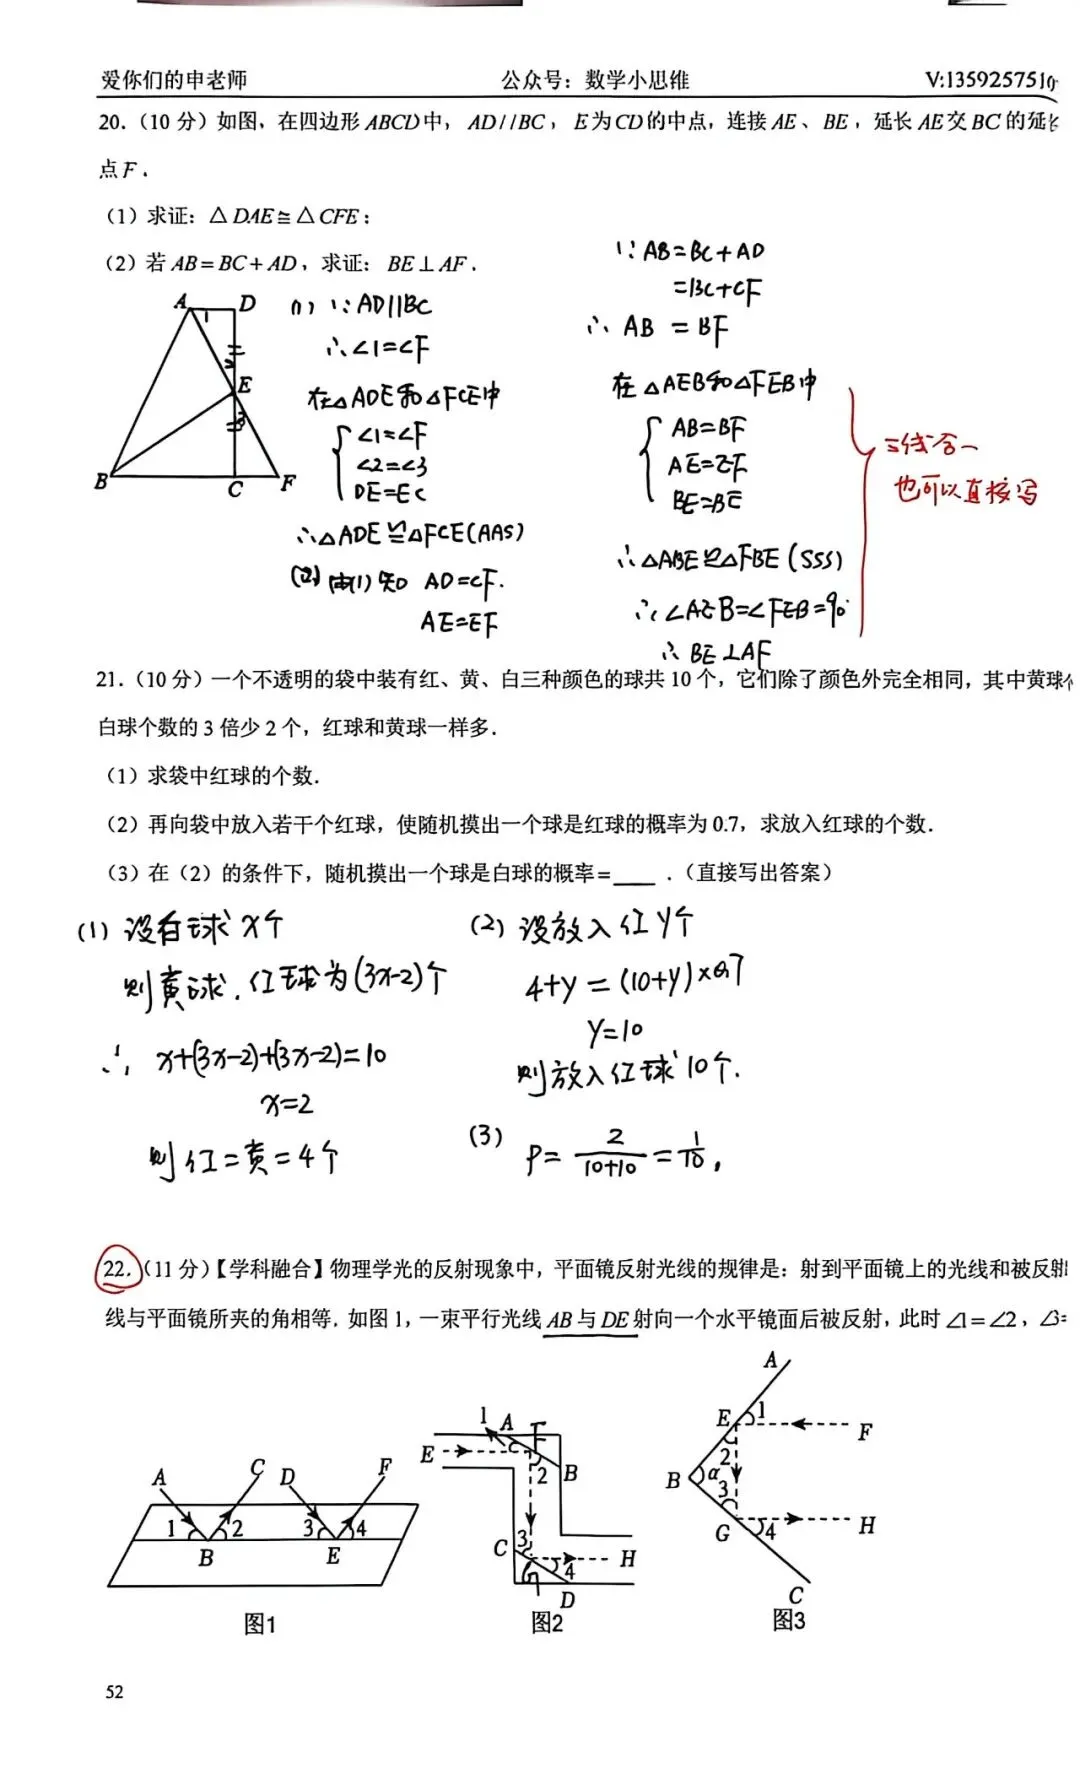 爱你们的申老师 公众号：数学小思维 V:1359257510
20.（10 分）如图，在四边形 ABCD 中， AD//BC ， E 为 CD 的中点，连接 AE 、 BE ，延长 AE 交 BC 的延长
点 F .
（1）求证：△ DAE ≌ △ CFE ；
（2）若 AB = BC + AD ，求证： BE ⊥ AF .
A
D
1
2
E
3
B
C
F
(1) ∵ AD∥BC
∴∠1=∠F
在△ADE和△FCE中
∠1=∠F
∠2=∠3
DE=EC
∴△ADE≌△FCE(AAS)
(2) 由(1)知 AD=CF.
AE=EF
∵ AB=BC+AD
=BC+CF
∴ AB = BF
在△AEB和△FEB中
AB=BF
AE=EF
BE=BE
∴△ABE≌△FBE(SSS)
∴∠AEB=∠FEB=90°
∴ BE⊥AF
三线合一
也可以直接写
21.（10 分）一个不透明的袋中装有红、黄、白三种颜色的球共 10 个，它们除了颜色外完全相同，其中黄球个
白球个数的 3 倍少 2 个，红球和黄球一样多.
（1）求袋中红球的个数.
（2）再向袋中放入若干个红球，使随机摸出一个球是红球的概率为 0.7，求放入红球的个数.
（3）在（2）的条件下，随机摸出一个球是白球的概率=____ .（直接写出答案）
(1) 设白球x个
则黄球.红球为(3x-2)个
∴ x+(3x-2)+(3x-2)=10
x=2
则红=黄=4个
(2) 设放入红y个
4+y=(10+y)×0.7
y=10
则放入红球10个.
(3) P= 2/(10+10) = 1/10 ,
22.（11 分）【学科融合】物理学光的反射现象中，平面镜反射光线的规律是：射到平面镜上的光线和被反射
线与平面镜所夹的角相等. 如图 1，一束平行光线 AB 与 DE 射向一个水平镜面后被反射，此时 ∠1=∠2，∠3=
A C D F
1 2 3 4
B E
图1
1 A F
E
2 B
C 3
H
4
G D
图2
A
E 1
F
2
B α
3
G 4 H
C
图3
52